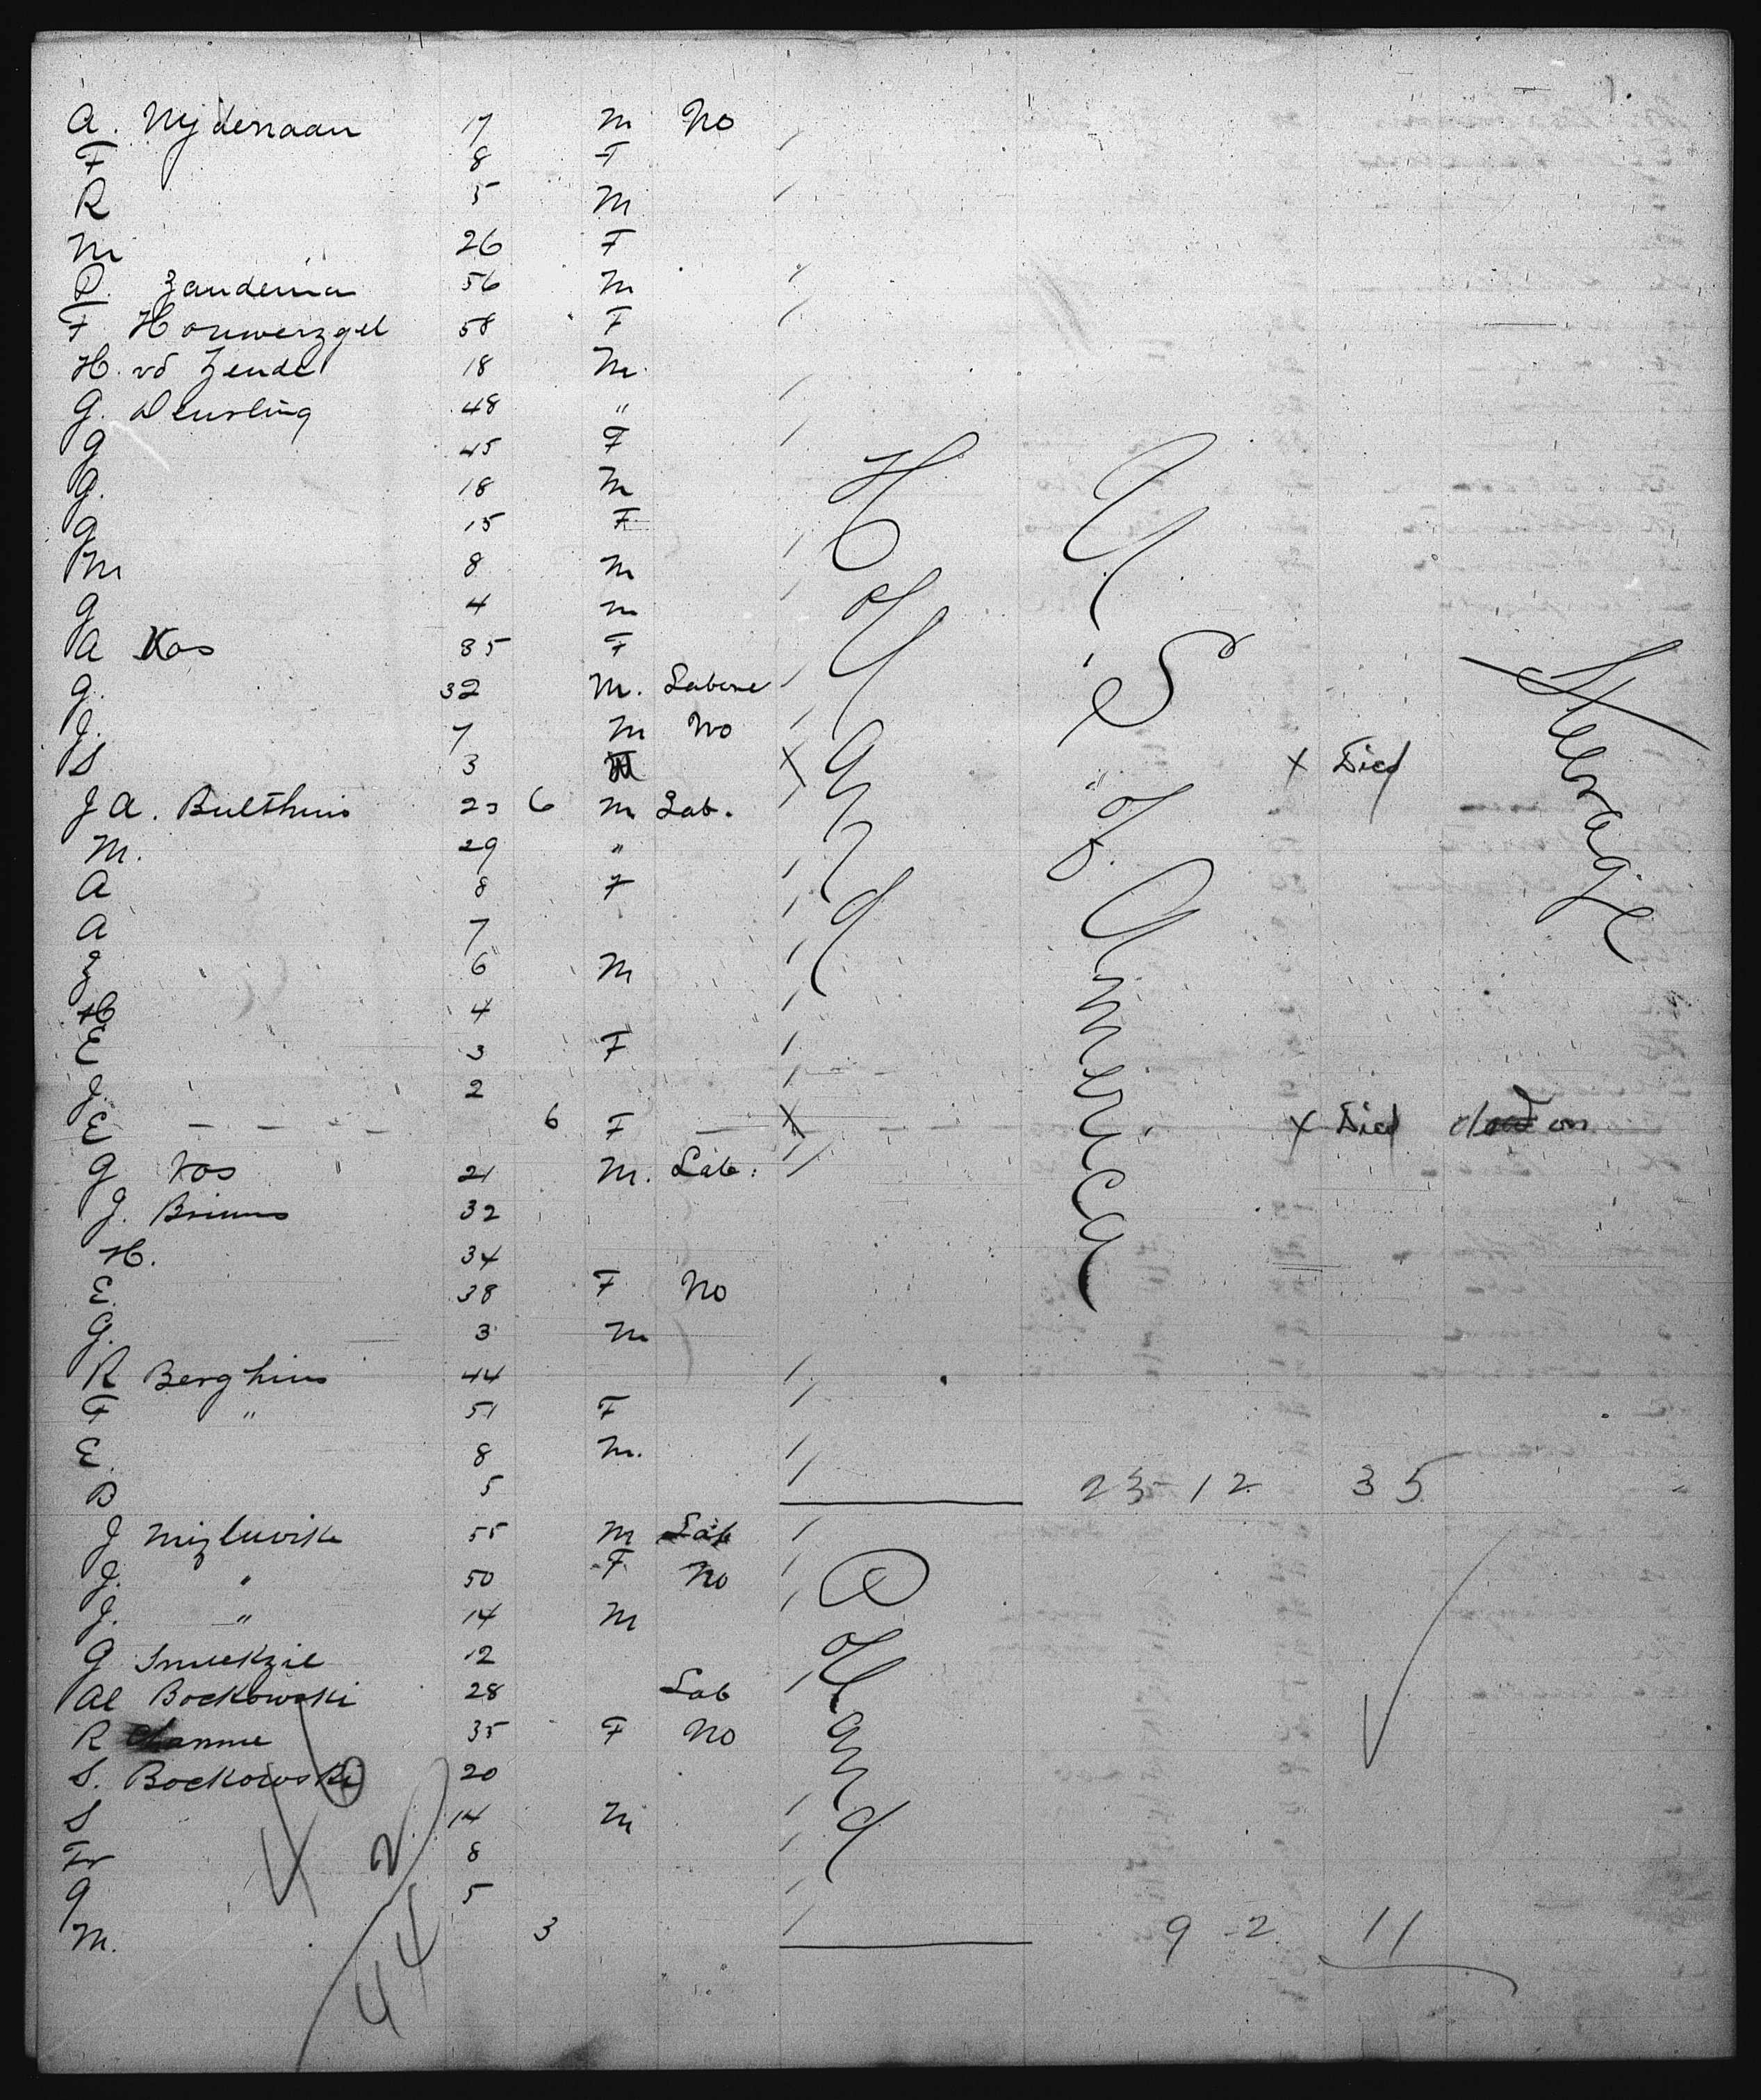 A. Nydenaan 17 M No
F 8 F
R 5 M
M 26 F
R. Zandema 56 M
F Houwerzgel 58 F
H. vd Zende 18 M.
G. Deusling 48 "
G 45 F
G. 18 M
G 15 F
M 8 M
G 4 M
A Kos 35 F
G. 32 M. Labore
J. 7 M No
S 3 X X Died
J A. Bulthuis 23 6 M Lab.
M. 29 "
A 8 F
A 7
Z 6 M
H 4
E 3 F
J. 2
E - - - - 6 F X X Died
G Vos 21 M. Lab.
J. Briums 32
H. 34
E. 38 F No
G. 3 M
R Berghuis 44
F " 51 F
E. 8 M.
B 5
Holland
U. S. of America
Steerage
23-12 35
J Mizluvik 55 M Lab
J. " 50 F No
J. " 14 M
G Smeekzie 12
Al Bockowski 28 Lab
R 35 F No
S. Bockowski 20
S 14 M
Fr 8
G 5
M. 3
Holland
9-2 11
2
44